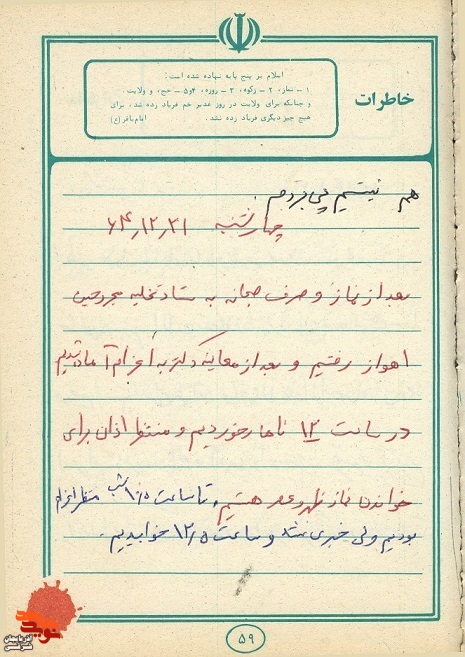 خاطرات
اسلام بر پنج پایه نهاده شده است:
۱ – نماز، ۲ – زکوة، ۳ – روزه، ۴و۵ – حج، و ولایت.
و چنانکه برای ولایت در روز غدیر خم فریاد زده شد، برای
هیچ چیز دیگری فریاد زده نشد. امام باقر (ع)
هم نیستیم
چهارشنبه ۶۴,۱۲,۲۱
بعد از نماز و صرف صبحانه به ستاد تخلیه مجروحین
اهواز رفتیم و بعد از معاینه دکتر به اعزام آماده شدیم
در ساعت ۱۲ ناهار خوردیم و منتظر اذان برای
خواندن نماز ظهر و عصر هستیم، تا ساعت ۱۰/۵ شب منتظر اعزام
بودیم ولی خبری نشد و ساعت ۱۲/۵ خوابیدیم.
۵۹
نوید
آذربایجان شرقی